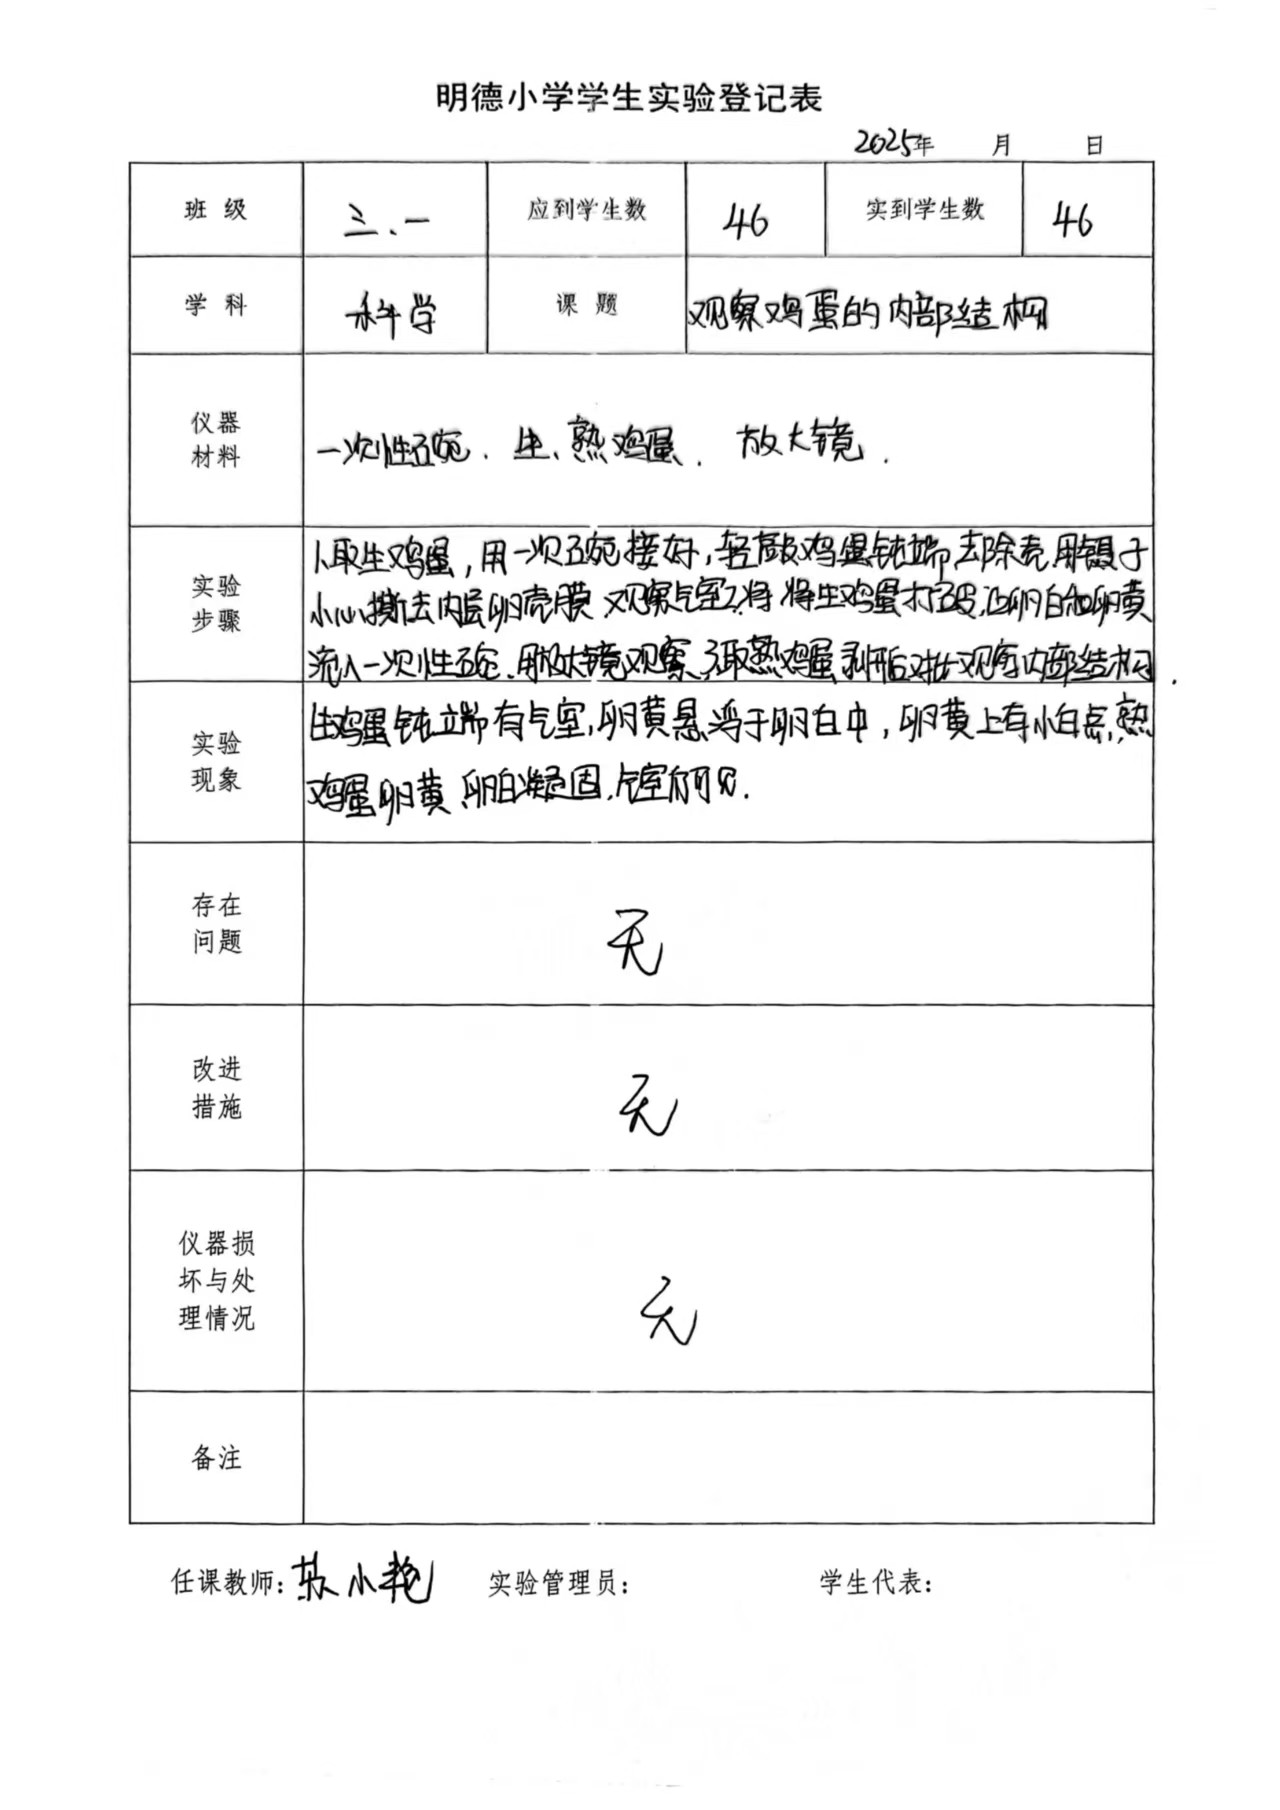 明德小学学生实验登记表
2025年 月 日
班 级 三、一 应到学生数 46 实到学生数 46
学 科 科学 课 题 观察鸡蛋的内部结构
仪器
材料
一次性碗、生、熟鸡蛋、放大镜.
实验
步骤
1.取生鸡蛋,用一次碗接好,轻敲鸡蛋钝端,去除壳,用镊子
小心撕去内层卵壳膜,观察气室2.将 将生鸡蛋打破,让卵白和卵黄
流入一次性碗,用放大镜观察,3.取熟鸡蛋剥开后对比观察内部结构.
实验
现象
生鸡蛋钝端有气室,卵黄悬浮于卵白中,卵黄上有小白点,熟
鸡蛋卵黄、卵白凝固,气室仍可见.
存在
问题
无
改进
措施
无
仪器损
坏与处
理情况
无
备注
任课教师:苏小艳 实验管理员: 学生代表: